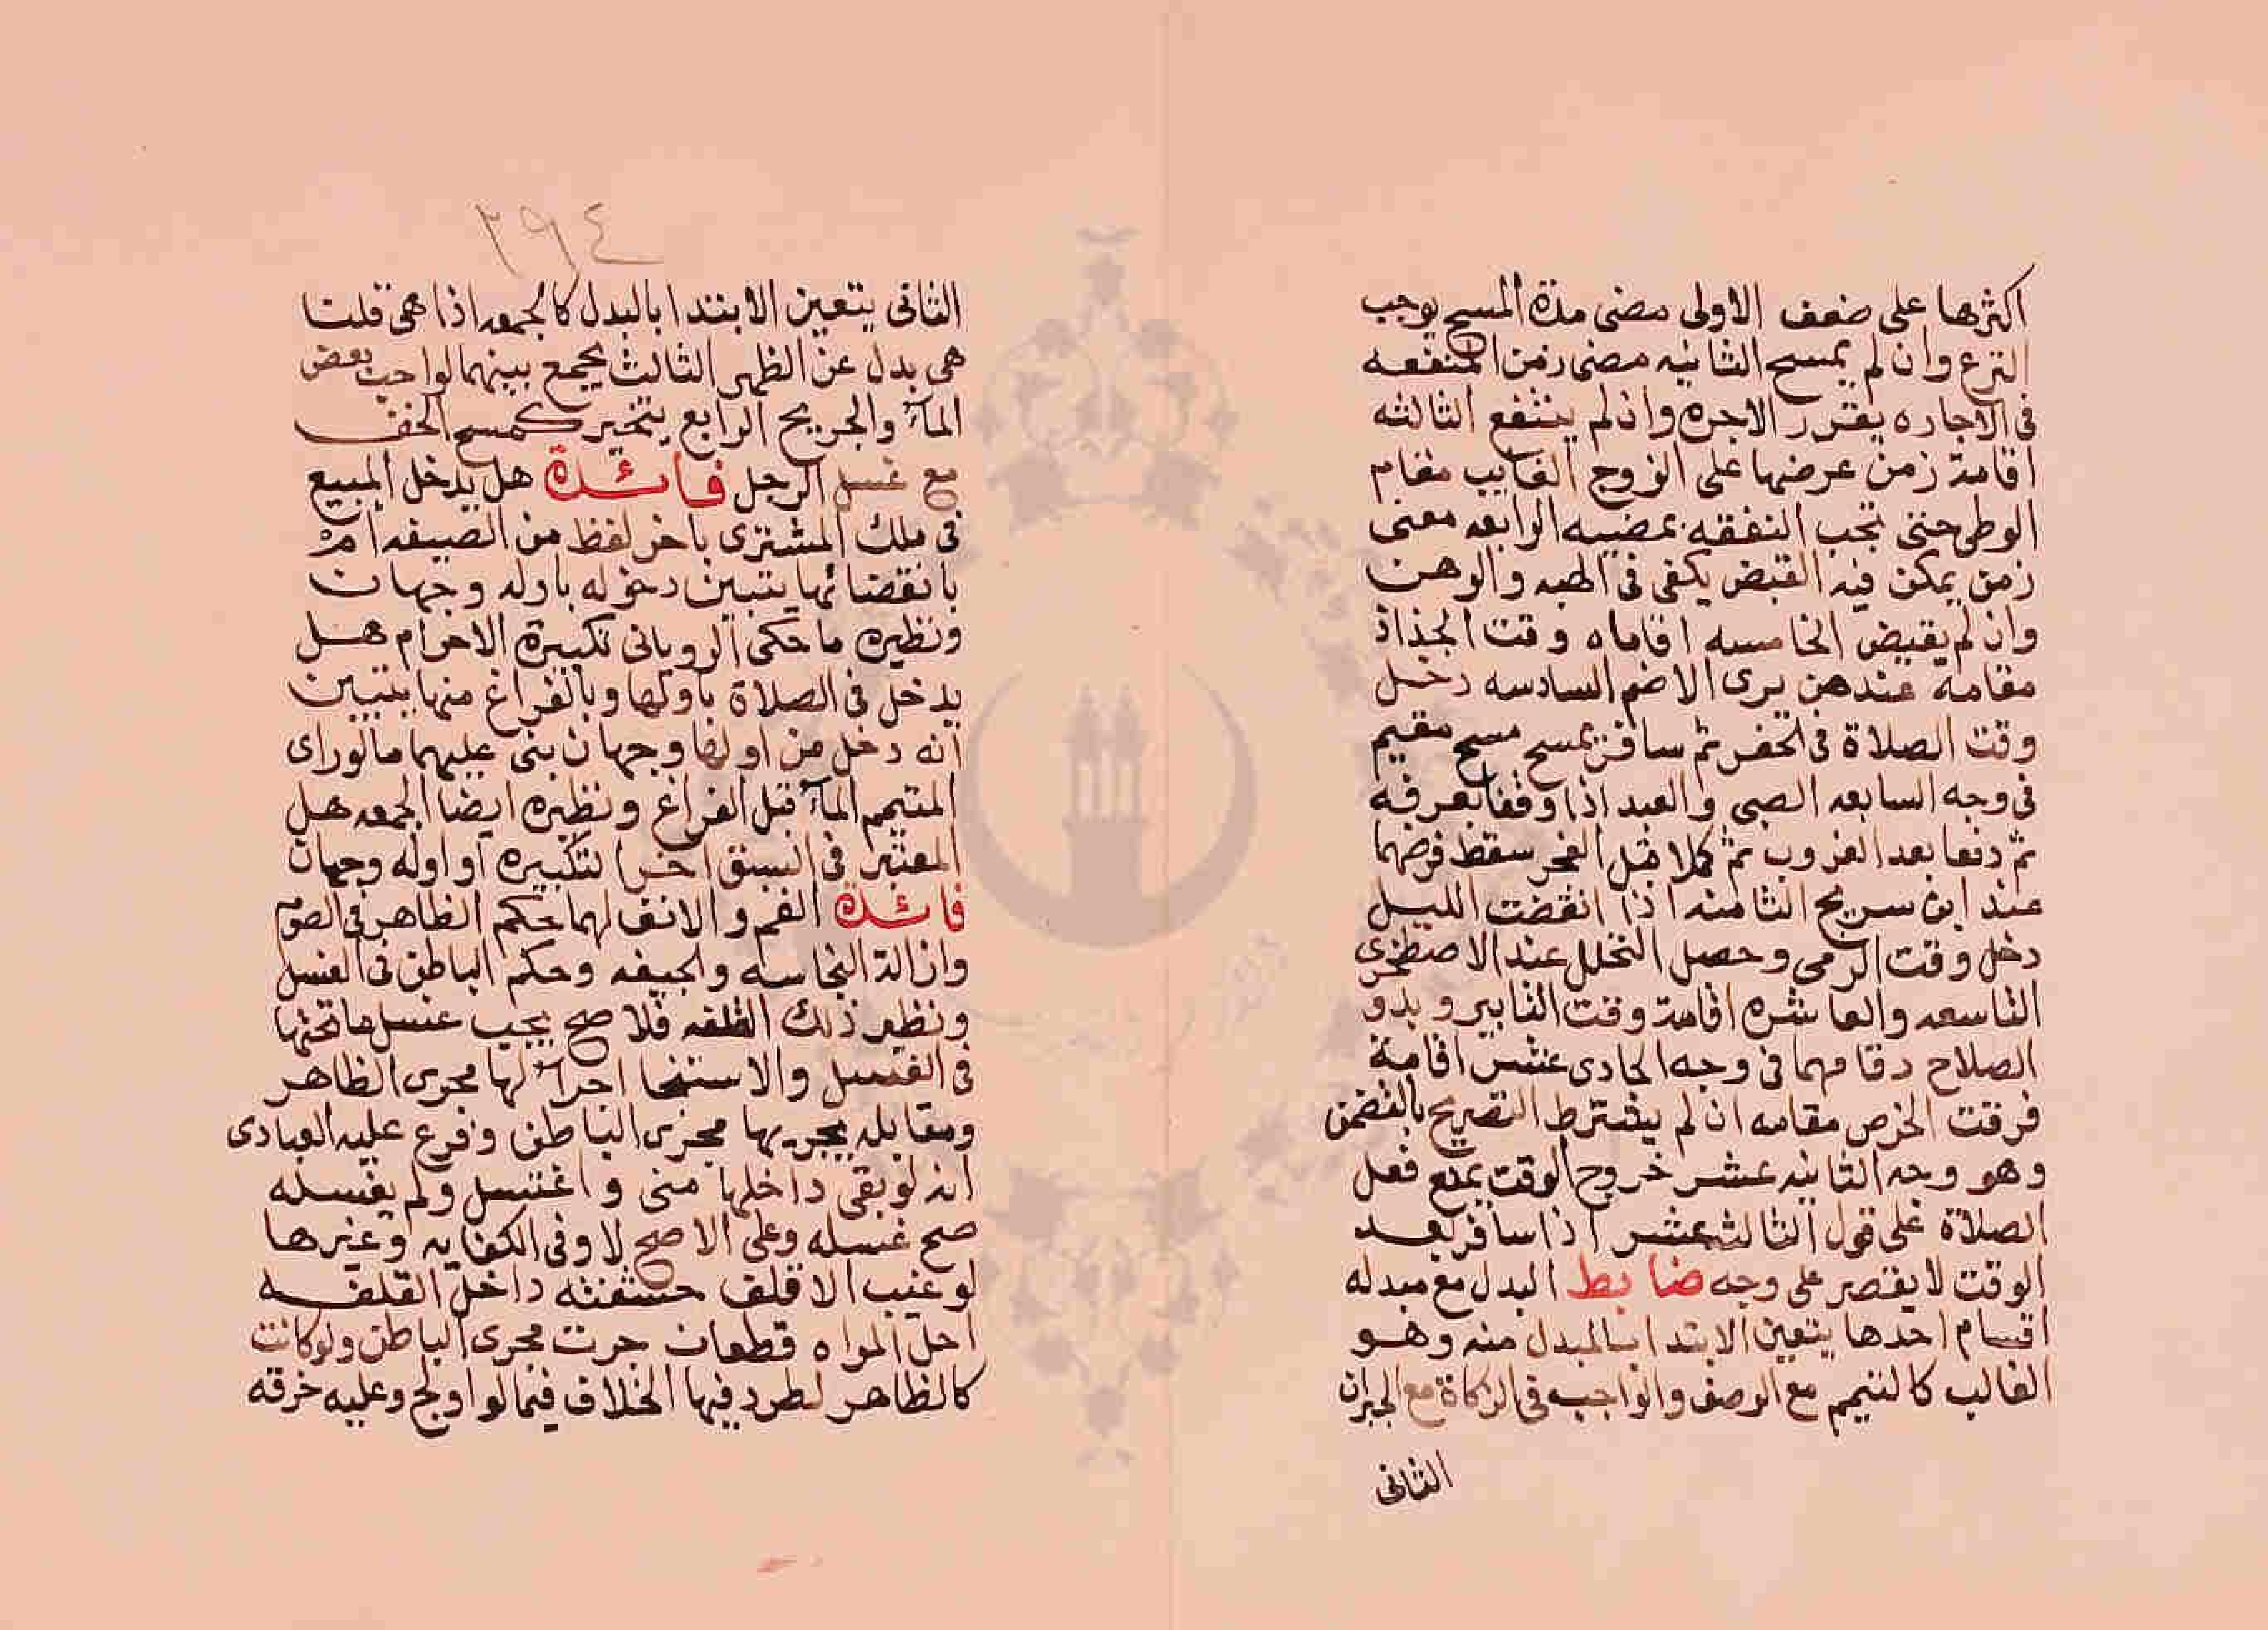 اكثرها على ضعف الاولى مضى مدة المسح يوجب
النزع وان لم يمسح الثانيه مضى زمن المنفعه
فى الاجاره يقرر الاجره وان لم ينتفع الثالثه
اقامة زمن عرضها على الزوج الغايب مقام
الوطى حتى تجب النفقه بمضيه الرابعه معنى
زمن يمكن فيه القبض يكفى فى الهبه والرهن
وان لم يقبض الخامسه اقاماه وقت الجذاذ
مقامه عندهن يرى الاضم السادسه دخل
وقت الصلاة فى الحضر ثم سافر يمسح مسح مقيم
فى وجه السابعه الصبى والعبد اذا وقفا بعرفه
ثم دفعا بعد الغروب ثم كملا قبل الفجر سقط فرضهما
عند ابن سريج الثامنه اذا انقضت الليل
دخل وقت الرمى وحصل التحلل عند الاصطخرى
التاسعه والعاشره اقامة وقت التابير وبدو
الصلاح دقامهما فى وجه الحادى عشر اقامة
فرقت الخرص مقامه ان لم يشترط التصريح بالتضمن
وهو وجه الثانيه عشر خروج الوقت يمنع فعل
الصلاة على قول الثالث عشر اذا سافر بعد
الوقت لا يقصر على وجه ضابط البدل مع مبدله
اقسام احدها يتعين الابتدا بالمبدل منه وهو
الغالب كالتيمم مع الوضو والواجب فى الزكاة مع الجبران
الثانى
٢٩٤
الثانى يتعين الابتدا بالبدل كالجمعه اذا هى قلنا
هى بدل عن الظهر الثالث يجمع بينهما لواجب بعض
المآء والجريح الرابع يتخير كمسح الخف
مع غسل الرجل فائدة هل يدخل المبيع
فى ملك المشترى باخر لفظ من الصيغه ام
بانقضائها يتبين دخوله باوله وجهان
ونظيره ما حكى الرويانى تكبيرة الاحرام هل
يدخل فى الصلاة باولها وبالفراغ منها يتبين
انه دخل من اولها وجهان بنى عليهما مالوراى
المتيمم المآء قبل الفراغ ونظيره ايضا الجمعه هل
المعتبر فى السبق اخرا لتكبيره او اوله وجهان
فائدة الفم والانف لهما حكم الظاهر فى الصوم
وازالة النجاسه والجيفه وحكم الباطن فى الغسل
ونظير ذلك القلفه فلاصح يجب غسل ما تحتها
فى الغسل والاستنجا اجرآء لها مجرى الظاهر
ومقابله يجريها مجرى الباطن وفرع عليه العبادى
انه لو بقى داخلها منى واغتسل ولم يغسله
صح غسله وعلى الاصح لا وفى الكفايه وغيرها
لو غيب الاقلف حشفته داخل القلفه
احل المراه قطعان جرت مجرى الباطن ولو كانت
كالظاهر لطرد فيها الخلاف فيما لو اولج وعليه خرقه